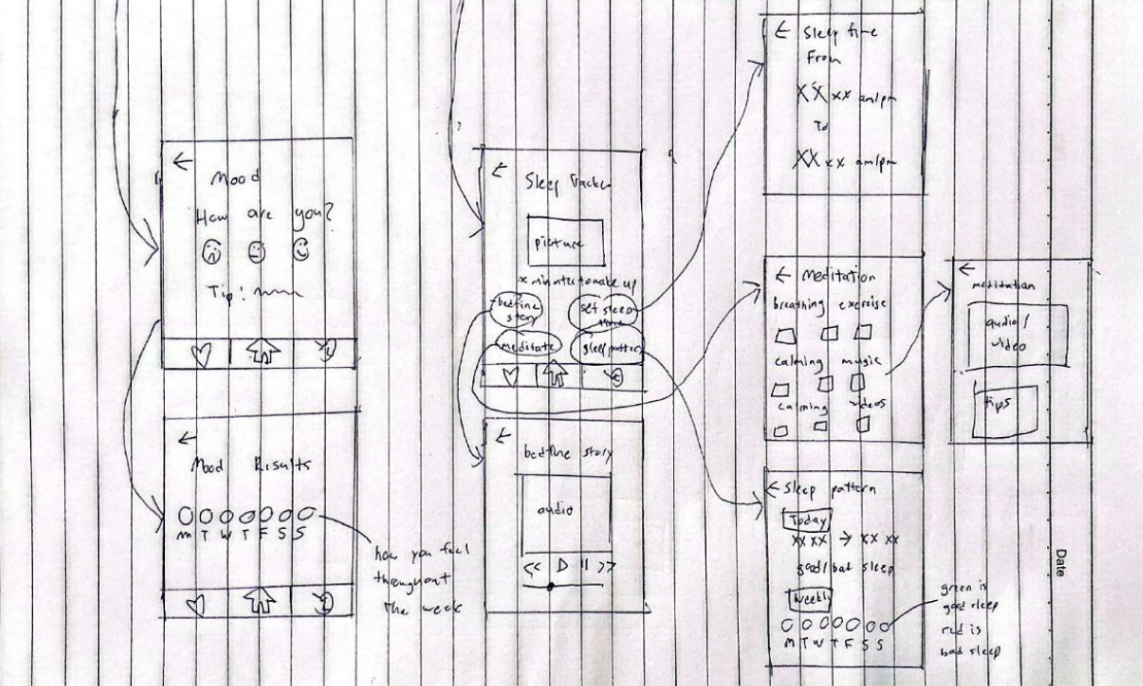 ←
Mood
How are you?
Tip:
←
Mood Results
M T W T F S S
how you feel
throughout
the week
←
Sleep Tracker
picture
x minutes to wake up
bedtime
story
set sleep
time
meditate
sleep pattern
←
bedtime story
audio
<< ▷ || >>
← Sleep time
From
XX xx am/pm
To
XX xx am/pm
← Meditation
breathing exercise
calming music
calming videos
←
meditation
audio/
video
tips
← Sleep pattern
Today
xx xx → xx xx
good/bad sleep
Weekly
M T W T F S S
green is
good sleep
red is
bad sleep
Date